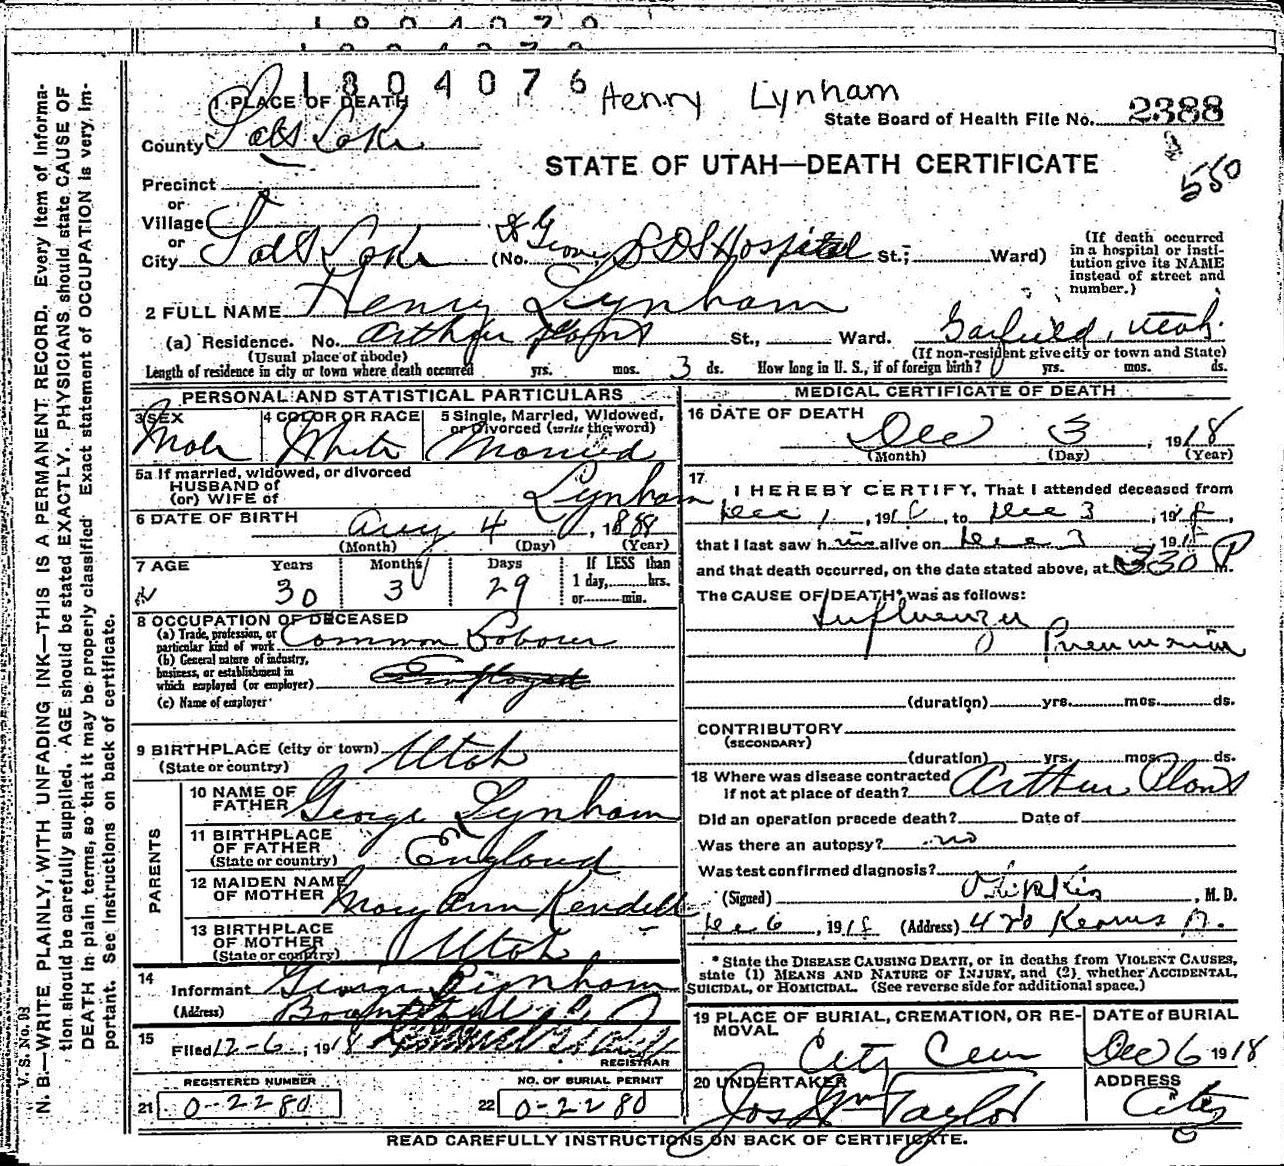 1804076
Henry Lynham
State Board of Health File No. 2388
550
STATE OF UTAH—DEATH CERTIFICATE
1 PLACE OF DEATH
County Salt Lake
Precinct
or
Village
or
City Salt Lake (No. LDS Hospital St.; Ward)
(If death occurred in a hospital or insti-
tution give its NAME
instead of street and
number.)
2 FULL NAME Henry Lynham
(a) Residence. No. Arthur Plant St., Ward. Garfield, Utah.
(Usual place of abode) (If non-resident give city or town and State)
Length of residence in city or town where death occurred yrs. mos. 3 ds. How long in U. S., if of foreign birth? yrs. mos. ds.
PERSONAL AND STATISTICAL PARTICULARS
3 SEX 4 COLOR OR RACE 5 Single, Married, Widowed,
or Divorced (write the word)
Male White Married
5a If married, widowed, or divorced
HUSBAND of
(or) WIFE of Lynham
6 DATE OF BIRTH Aug 4, 1888
(Month) (Day) (Year)
7 AGE Years Months Days If LESS than
1 day, hrs.
or min.
30 3 29
8 OCCUPATION OF DECEASED
(a) Trade, profession, or
particular kind of work Common Laborer
(b) General nature of industry,
business, or establishment in
which employed (or employer) Employed
(c) Name of employer
9 BIRTHPLACE (city or town) Utah
(State or country)
PARENTS
10 NAME OF
FATHER George Lynham
11 BIRTHPLACE
OF FATHER England
(State or country)
12 MAIDEN NAME
OF MOTHER Mary Ann Kendell
13 BIRTHPLACE
OF MOTHER Utah
(State or country)
14 Informant George Lynham
(Address) Bountiful
15 Filed 12-6, 1918
REGISTRAR
REGISTERED NUMBER NO. OF BURIAL PERMIT
21 0-2280 22 0-2280
MEDICAL CERTIFICATE OF DEATH
16 DATE OF DEATH
Dec 3, 1918
(Month) (Day) (Year)
17 I HEREBY CERTIFY, That I attended deceased from
Dec 1, 1918, to Dec 3, 1918,
that I last saw him alive on Dec 3 1918
and that death occurred, on the date stated above, at 330 P m.
The CAUSE OF DEATH* was as follows:
Influenza
Pneumonia
(duration) yrs. mos. ds.
CONTRIBUTORY
(SECONDARY)
(duration) yrs. mos. ds.
18 Where was disease contracted
if not at place of death? Arthur Plant
Did an operation precede death? Date of
Was there an autopsy? no
Was test confirmed diagnosis?
(Signed) , M. D.
Dec 6, 1918 (Address) 420 Kearns
* State the DISEASE CAUSING DEATH, or in deaths from VIOLENT CAUSES,
state (1) MEANS AND NATURE OF INJURY, and (2) whether ACCIDENTAL,
SUICIDAL, or HOMICIDAL. (See reverse side for additional space.)
19 PLACE OF BURIAL, CREMATION, OR RE-
MOVAL DATE of BURIAL
City Cem Dec 6 1918
20 UNDERTAKER ADDRESS
Jos Wm Taylor City
READ CAREFULLY INSTRUCTIONS ON BACK OF CERTIFICATE.
V. S. No. 98
N. B.—WRITE PLAINLY, WITH UNFADING INK—THIS IS A PERMANENT RECORD. Every item of informa-
tion should be carefully supplied. AGE should be stated EXACTLY. PHYSICIANS should state CAUSE OF
DEATH in plain terms, so that it may be properly classified. Exact statement of OCCUPATION is very im-
portant. See instructions on back of certificate.